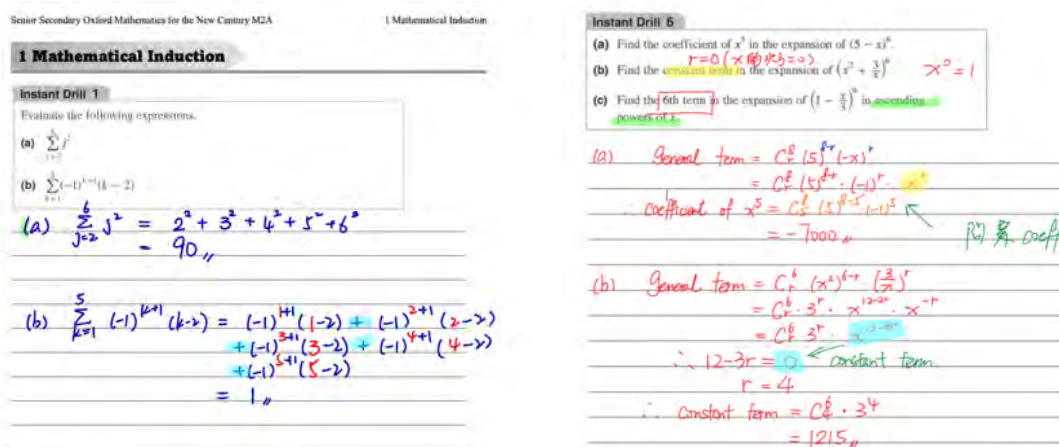 Senior Secondary Oxford Mathematics for the New Century M2A
1 Mathematical Induction
1 Mathematical Induction
Instant Drill 1
Evaluate the following expressions.
(a) ∑ j²
(b) ∑ (−1)^(k+1) (k − 2)
(a) 6∑j=2 j² = 2² + 3² + 4² + 5² + 6²
= 90 〃
(b) 5∑k=1 (-1)^(k+1) (k-2) = (-1)^(1+1) (1-2) + (-1)^(2+1) (2-2)
+ (-1)^(3+1) (3-2) + (-1)^(4+1) (4-2)
+ (-1)^(5+1) (5-2)
= 1 〃
Instant Drill 6
(a) Find the coefficient of x⁵ in the expansion of (5 − x)⁸.
r=0 (x的次方=0)
(b) Find the constant term in the expansion of (x² + 3/x)⁶. x⁰ = 1
(c) Find the 6th term in the expansion of (1 − x/3)⁸ in ascending
powers of x.
(a) General term = C⁸ᵣ (5)^(8-r) (-x)^r
= C⁸ᵣ (5)^(8-r) · (-1)^r · x^r
∴ coefficient of x⁵ = C⁸₅ (5)^(8-5) (-1)⁵
= -7000 〃
問 coeff
(b) General term = C⁶ᵣ (x²)^(6-r) (3/x)^r
= C⁶ᵣ · 3^r · x^(12-2r) · x^(-r)
= C⁶ᵣ 3^r · x^(12-3r)
∴ 12-3r = 0 constant term.
r = 4
∴ constant term = C⁶₄ · 3⁴
= 1215 〃